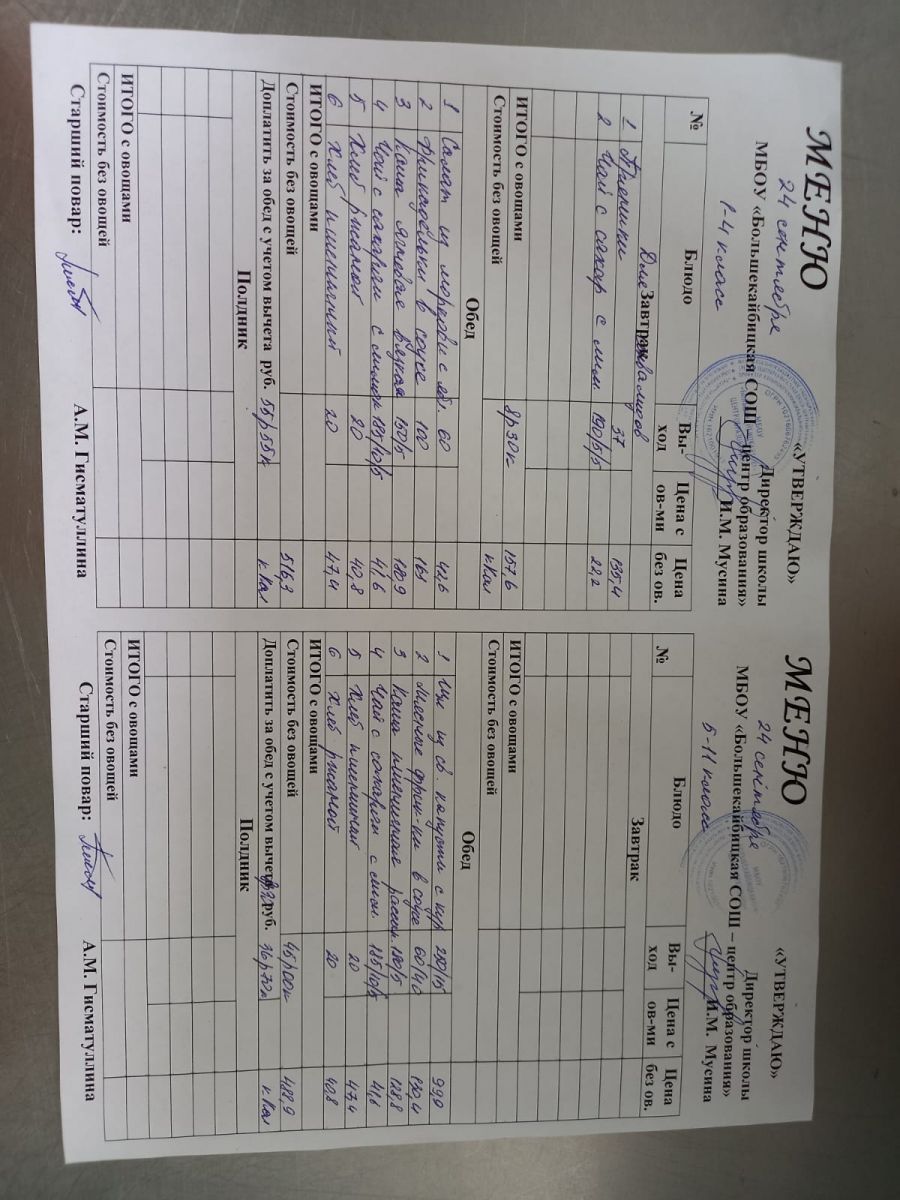 «УТВЕРЖДАЮ»
МЕНЮ
Директор школы
МБОУ «Большекайбицкая СОШ – центр образования»
24 сентября
И.М. Мусина
1-4 класс
№ Блюдо Вы-ход Цена с ов-ми Цена без ов.
Завтрак
1 Пряники 37 135,4
2 Чай с сахар с лим 190/5/5 22,2
ИТОГО с овощами 157,6
Стоимость без овощей 8р30к ккал
Обед
1 Салат из моркови с яб. 60 42,6
2 Фрикадельки в соусе 100 161
3 Каша ячневая вязкая 150/5 180,9
4 Чай с сахаром с лимон 185/10/5 41,6
5 Хлеб ржаной 20 40,8
6 Хлеб пшеничный 20 47,4
ИТОГО с овощами
Стоимость без овощей 516,3
Доплатить за обед с учетом вычета руб. 55р55к ккал
Полдник
ИТОГО с овощами
Стоимость без овощей
Старший повар: А.М. Гисматуллина
«УТВЕРЖДАЮ»
МЕНЮ
Директор школы
МБОУ «Большекайбицкая СОШ – центр образования»
24 сентября
И.М. Мусина
5-11 класс
№ Блюдо Вы-ход Цена с ов-ми Цена без ов.
Завтрак
ИТОГО с овощами
Стоимость без овощей
Обед
1 Щи из св. капусты с кур 250/15 99,9
2 Мясные фрик-ки в соусе 60/40 130,4
3 Каша пшеничная рассып. 180/5 128,8
4 Чай с сахаром с лимон. 185/10/5 41,6
5 Хлеб пшеничный 20 47,4
6 Хлеб ржаной 20 40,8
ИТОГО с овощами
Стоимость без овощей 45р00к 488,9
Доплатить за обед с учетом вычета руб. 36р72к ккал
Полдник
ИТОГО с овощами
Стоимость без овощей
Старший повар: А.М. Гисматуллина